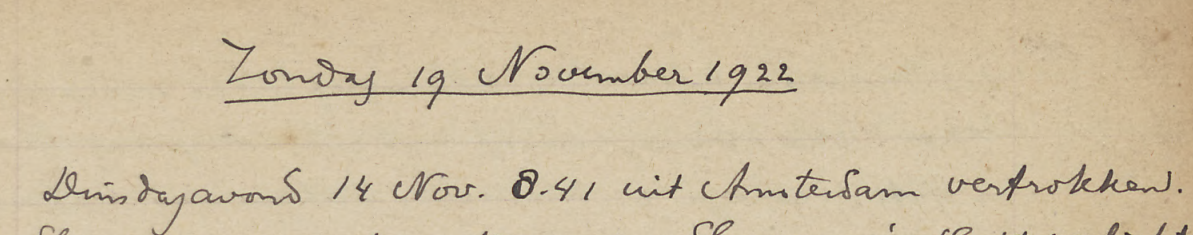 Zondag 19 November 1922
Dinsdagavond 14 Nov. 8.41 uit Amsterdam vertrokken.